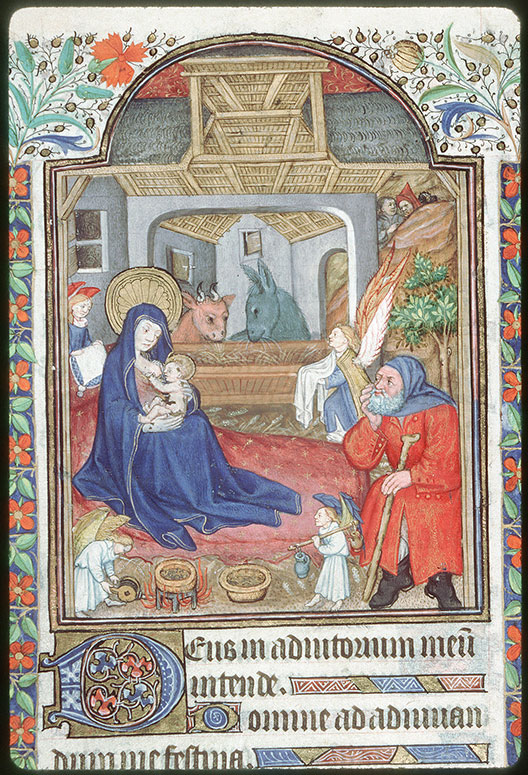 Deus in adiutorium meū
intende.
Domine ad adiuuan
dum me festina.